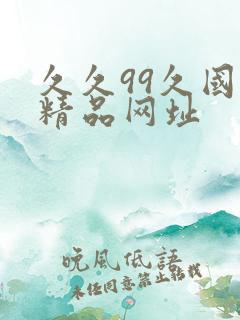 久久99久國
精品网址
晚风低語
未经同意禁止转载